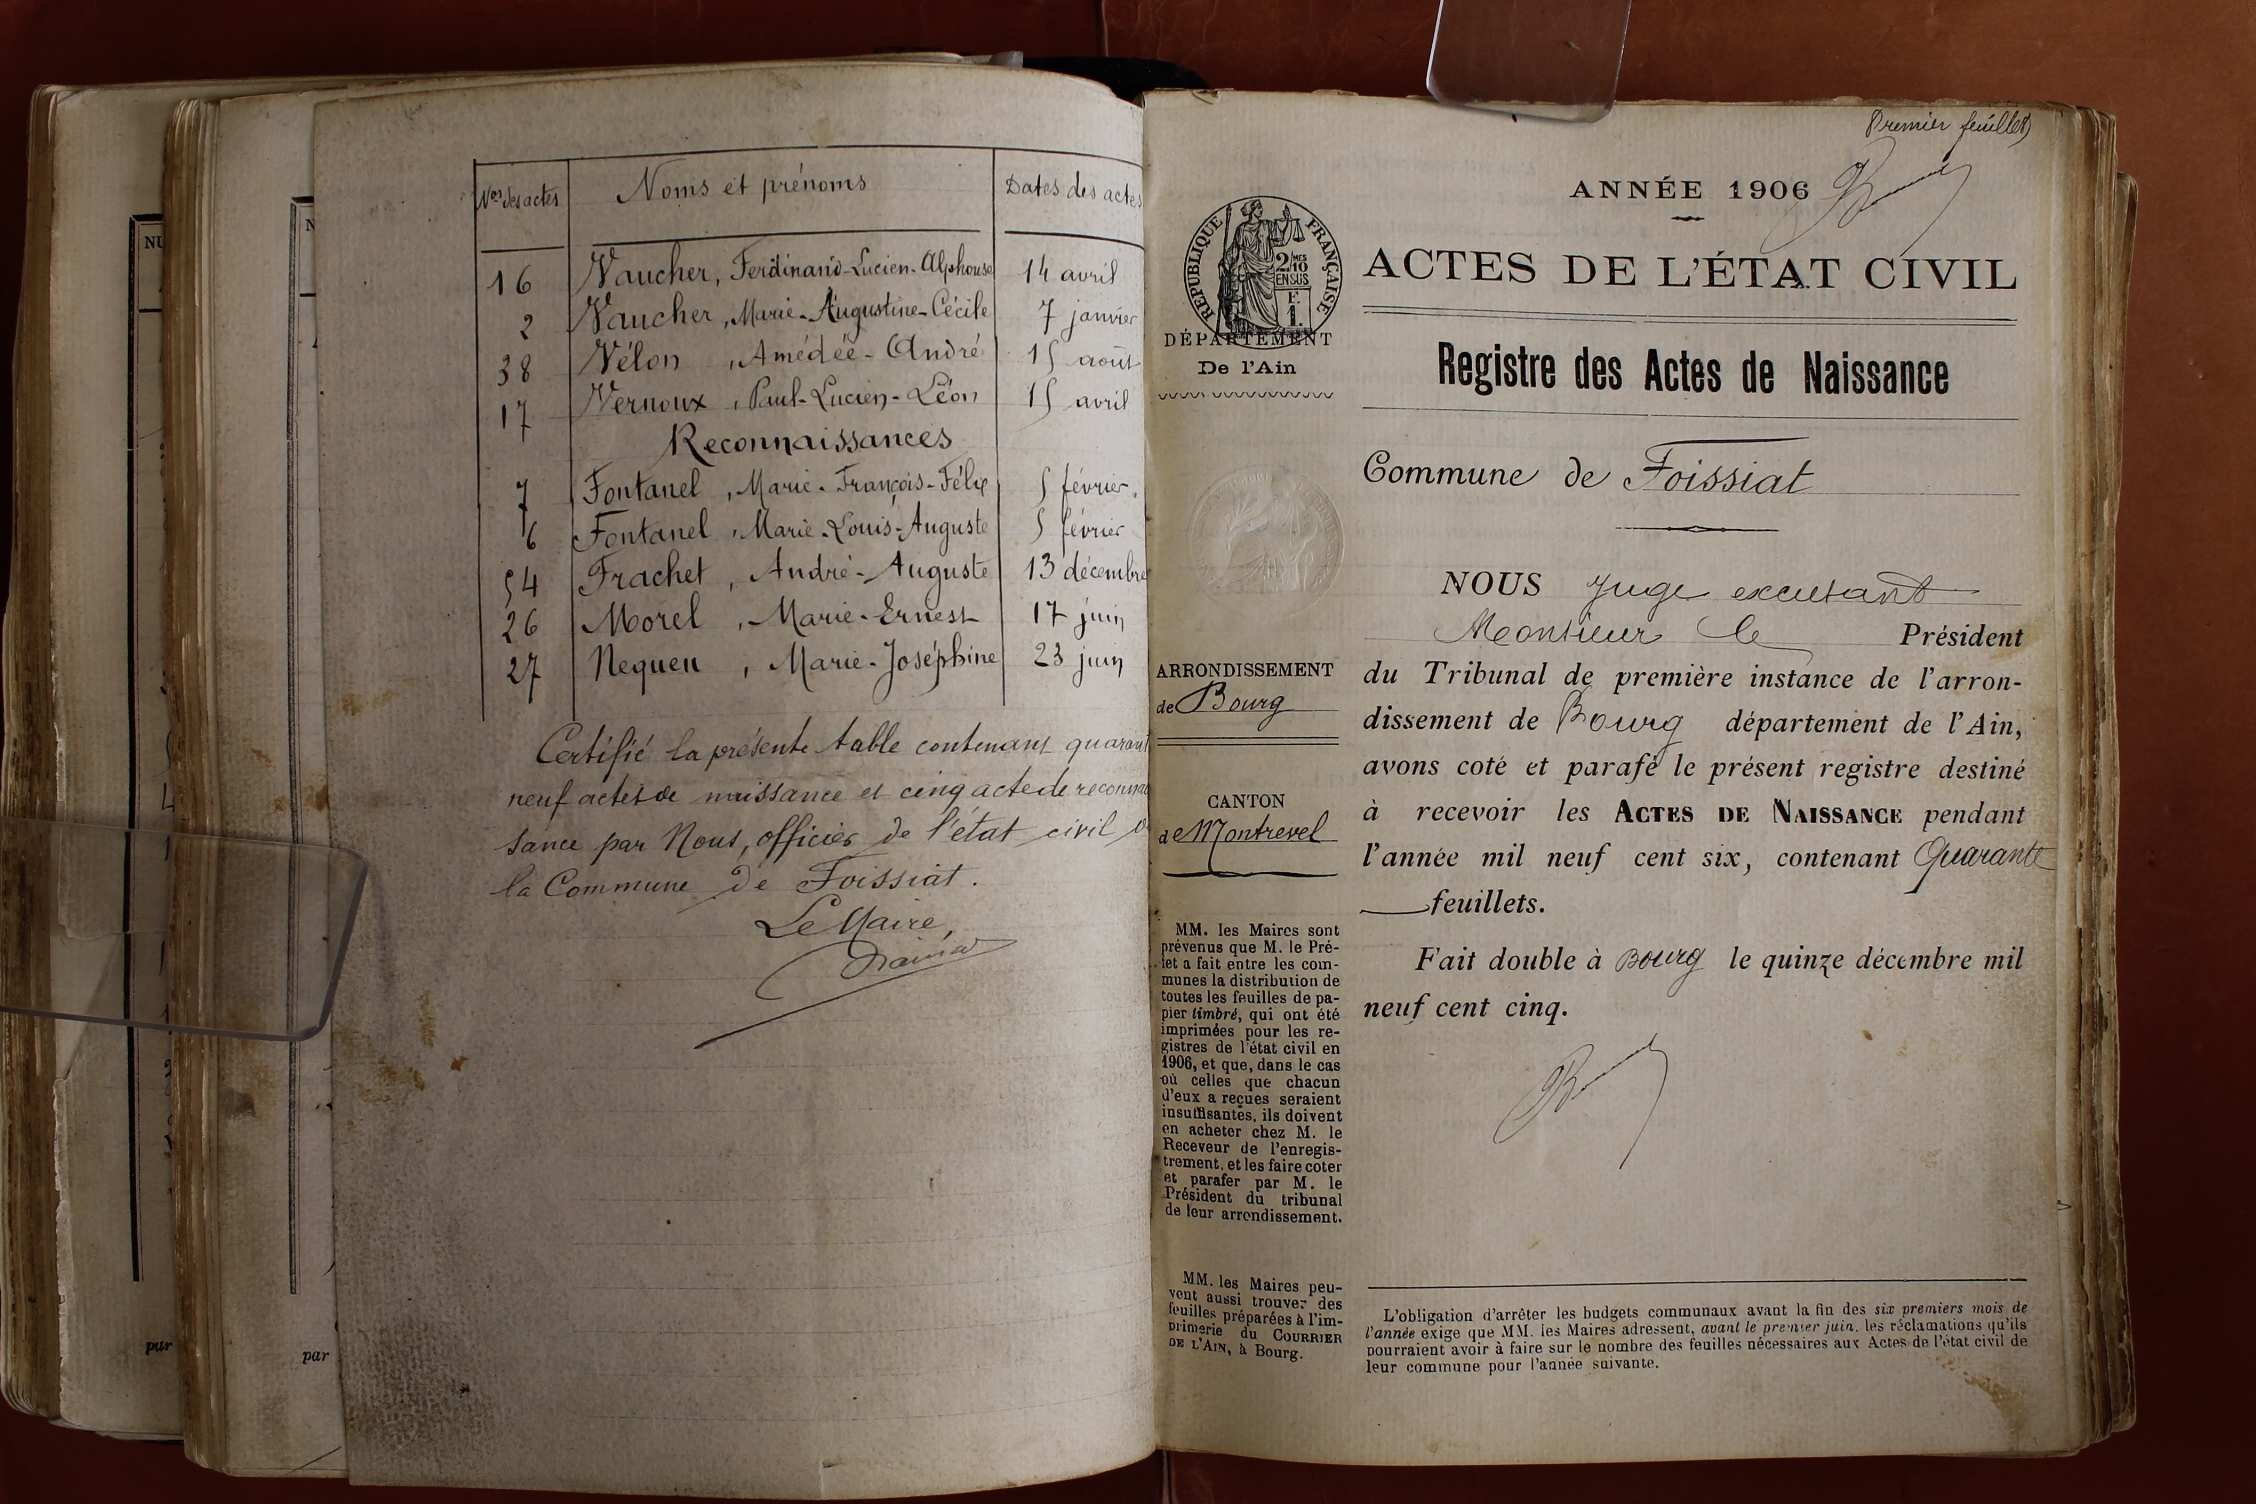 Nos des actes
Noms et prénoms
Dates des actes
16 Vaucher, Ferdinand-Lucien-Alphonse 14 avril
2 Vaucher, Marie-Augustine-Cécile 7 janvier
38 Vélon, Amédée-André 15 août
17 Vernoux, Paul-Lucien-Léon 15 avril
Reconnaissances
7 Fontanel, Marie-François-Félix 5 février.
6 Fontanel, Marie-Louis-Auguste 5 février
54 Frachet, André-Auguste 13 décembre
26 Morel, Marie-Ernest 17 juin
27 Nequeu, Marie-Joséphine 23 juin
Certifié la présente table contenant quarant
neuf actes de naissance et cinq acte de reconnai
sance par Nous, officier de l'état civil d
la Commune de Foissiat.
Le Maire,
par
par
Premier feuillet
ANNÉE 1906
ACTES DE L'ÉTAT CIVIL
RÉPUBLIQUE FRANÇAISE
2/10 MES
EN SUS
F.
1.
DÉPARTEMENT
De l'Ain
Registre des Actes de Naissance
Commune de Foissiat
ARRONDISSEMENT
de Bourg
CANTON
de Montrevel
MM. les Maires sont
prévenus que M. le Pré-
fet a fait entre les com-
munes la distribution de
toutes les feuilles de pa-
pier timbré, qui ont été
imprimées pour les re-
gistres de l'état civil en
1906, et que, dans le cas
où celles que chacun
d'eux a reçues seraient
insuffisantes, ils doivent
en acheter chez M. le
Receveur de l'enregis-
trement, et les faire coter
et parafer par M. le
Président du tribunal
de leur arrondissement.
MM. les Maires peu-
vent aussi trouver des
feuilles préparées à l'im-
primerie du COURRIER
DE L'AIN, à Bourg.
NOUS Juge excusant
Monsieur le Président
du Tribunal de première instance de l'arron-
dissement de Bourg département de l'Ain,
avons coté et parafé le présent registre destiné
à recevoir les ACTES DE NAISSANCE pendant
l'année mil neuf cent six, contenant Quarante
feuillets.
Fait double à Bourg le quinze décembre mil
neuf cent cinq.
L'obligation d'arrêter les budgets communaux avant la fin des six premiers mois de
l'année exige que MM. les Maires adressent, avant le premier juin, les réclamations qu'ils
pourraient avoir à faire sur le nombre des feuilles nécessaires aux Actes de l'état civil de
leur commune pour l'année suivante.